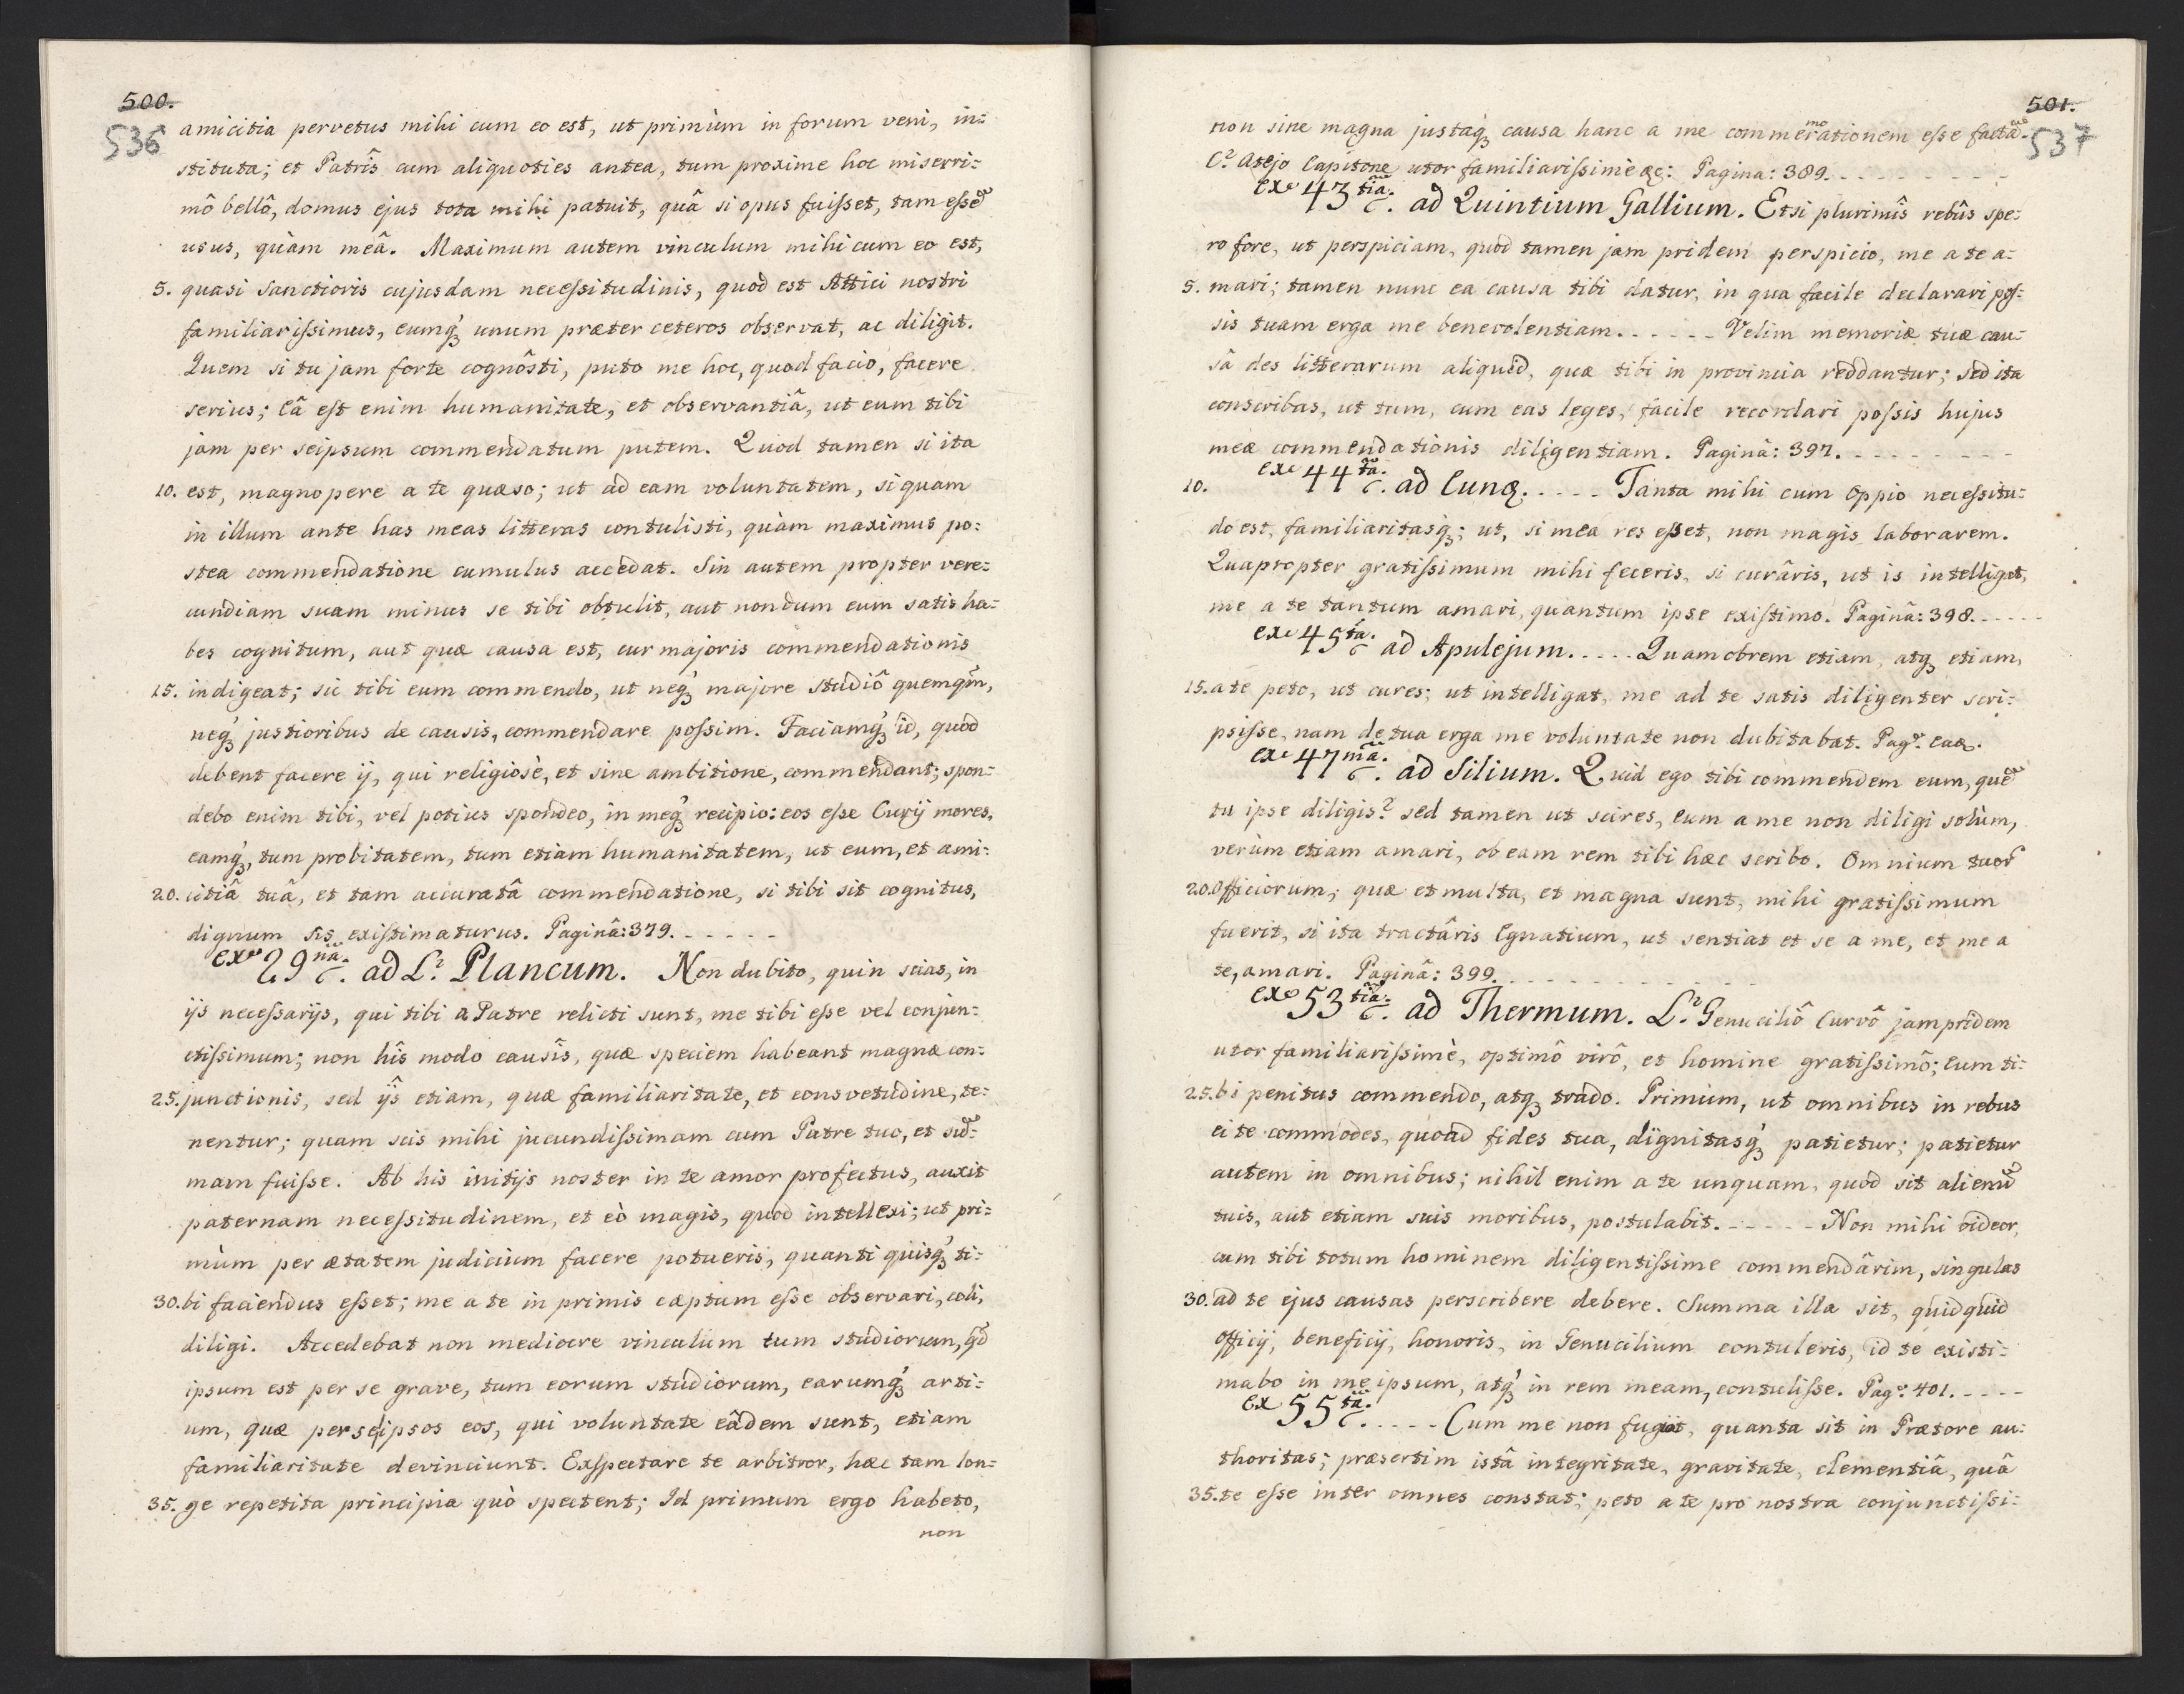 500.
536
amicitia pervetus mihi cum eo est, ut primùm in forum veni, in=
stituta; et Patrîs cum aliquoties antea, tum proxime hoc miserri=
mô bellô, domus ejus tota mihi patuit, quâ si opus fuisset, tam esse
usus, quàm meâ. Maximum autem vinculum mihi cum eo est,
5. quasi sanctioris cujusdam necessitudinis, quod est Attici nostri
familiarissimus, eumq́ꝫ unum præter ceteros observat, ac diligit.
Quem si tu jam forte cognôsti, puto me hoc, quod facio, facere
serius; Eâ est enim humanitate, et observantiâ, ut eum tibi
jam per seipsum commendatum putem. Quod tamen si ita
10. est, magnopere a te quæso; ut ad eam voluntatem, si quam
in illum ante has meas litteras contulisti, quàm maximus po=
stea commendatione cumulus accedat. Sin autem propter vere=
cundiam suam minus se tibi obtulit, aut nondum eum satis ha=
bes cognitum, aut quæ causa est, cur majoris commendationis
15. indigeat; sic tibi eum commendo, ut neq́ꝫ majore studiô quemq̃m,
neq́ꝫ justioribus de causis, commendare possim. Faciamq́ꝫ id, quod
debent facere ij, qui religiosè, et sine ambitione, commendant; spon=
debo enim tibi, vel potius spondeo, in meq́ꝫ recipio: eos esse Curij mores,
eamq́ꝫ, tum probitatem, tum etiam humanitatem, ut eum, et ami=
20. citiâ tuâ, et tam accuratâ commendatione, si tibi sit cognitus,
dignum sis existimaturus. Paginâ: 379. - - - - -
Exe 29nã. c. ad L? Plancum. Non dubito, quin scias, in
ijs necessarijs, qui tibi a Patre relicti sunt, me tibi esse vel conjun=
ctissimum; non hîs modo causîs, quæ speciem habeant magnæ con=
25. junctionis, sed ijs etiam, quæ familiaritate, et consvetudine, te=
nentur; quam scis mihi jucundissimam cum Patre tuo, et sum̃=
mam fuisse. Ab his initijs noster in te amor profectus, auxit
paternam necessitudinem, et eò magis, quod intellexi; ut pri=
mùm per ætatem judicium facere potueris, quanti quisq́ꝫ ti=
30. bi faciendus esset; me a te in primis cæptum esse observari, coli,
diligi. Accedebat non mediocre vinculum tum studiorum, qd̃
ipsum est per se grave, tum eorum studiorum, earumq́ꝫ arti=
um, quæ per seipsos eos, qui voluntate eâdem sunt, etiam
familiaritate devinciunt. Exspectare te arbitror, hæc tam lon=
35. ge repetita principia quò spectent; Id primum ergo habeto,
non
501.
537
non sine magna justaq́ꝫ causa hanc a me commemorationem esse factã.
C? Atejo Capitone utor familiarissimè &c: Pagina: 389. - - - - - - - - -
Exe 43tiã. c. ad Quintium Gallium. Etsi plurimîs rebûs spe=
ro fore, ut perspiciam, quod tamen jam pridem perspicio, me a te a=
5. mari; tamen nunc ea causa tibi datur, in qua facile declarari pos=
sis tuam erga me benevolentiam. - - - - - Velim memoriæ tuæ cau=
sâ des litterarum aliquid, quæ tibi in provincia reddantur; sed ita
conscribas, ut tum, cum eas leges, facile recordari possis hujus
meæ commendationis diligentiam. Paginâ: 397. - - - - - - - -
10. Exe 44tã. c. ad Eunđ. - - - - Tanta mihi cum Oppio necessitu=
do est, familiaritasq́ꝫ; ut, si mea res esset, non magis laborarem.
Quapropter gratissimum mihi feceris, si curâris, ut is intelligat,
me a te tantum amari, quantum ipse existimo. Paginâ: 398. - - - - -
Exe 45tã. c ad Apulejum. - - - - Quamobrem etiam, atqꝫ etiam,
15. a te peto, ut cures; ut intelligat, me ad te satis diligenter scri=
psisse, nam de tua erga me voluntate non dubitabat. Pagꝰ. Eađ.
Exe 47mã. c. ad Silium. Quid ego tibi commendem eum, quẽ
tu ipse diligis? sed tamen ut scires, eum a me non diligi solùm,
verùm etiam amari, ob eam rem tibi hæc scribo. Omnium tuor̃
20. Officiorum, quæ et multa, et magna sunt, mihi gratissimum
fuerit, si ita tractâris Egnatium, ut sentiat et se a me, et me a
te, amari. Paginâ: 399. - - - - - - - - - - - - -
Exe 53tiã. c. ad Thermum. L? Genuciliô Curvô jampridem
utor familiarissimè, optimô virô, et homine gratissimô; Eum ti=
25. bi penitus commendo, atqꝫ trado. Primùm, ut omnibus in rebus
ei te commodes, quoad fides tua, dignitasq́ꝫ patietur; patietur
autem in omnibus; nihil enim a te unquam, quod sit alienũ
tuis, aut etiam suis moribus, postulabit. - - - - - Non mihi videor,
cum tibi totum hominem diligentissime commendârim, singulas
30. ad te ejus causas perscribere debere. Summa illa sit, quidquid
officij, beneficij, honoris, in Genucilium contuleris, id te existi=
mabo in me ipsum, atq́ꝫ in rem meam, contulisse. Pagꝰ: 401. - - - -
Ex 55tã. c. - - - - Cum me non fugiat, quanta sit in Prætore au=
thoritas; præsertim istâ integritate, gravitate, clementiâ, quâ
35. te esse inter omnes constat; peto a te pro nostra conjunctissi=